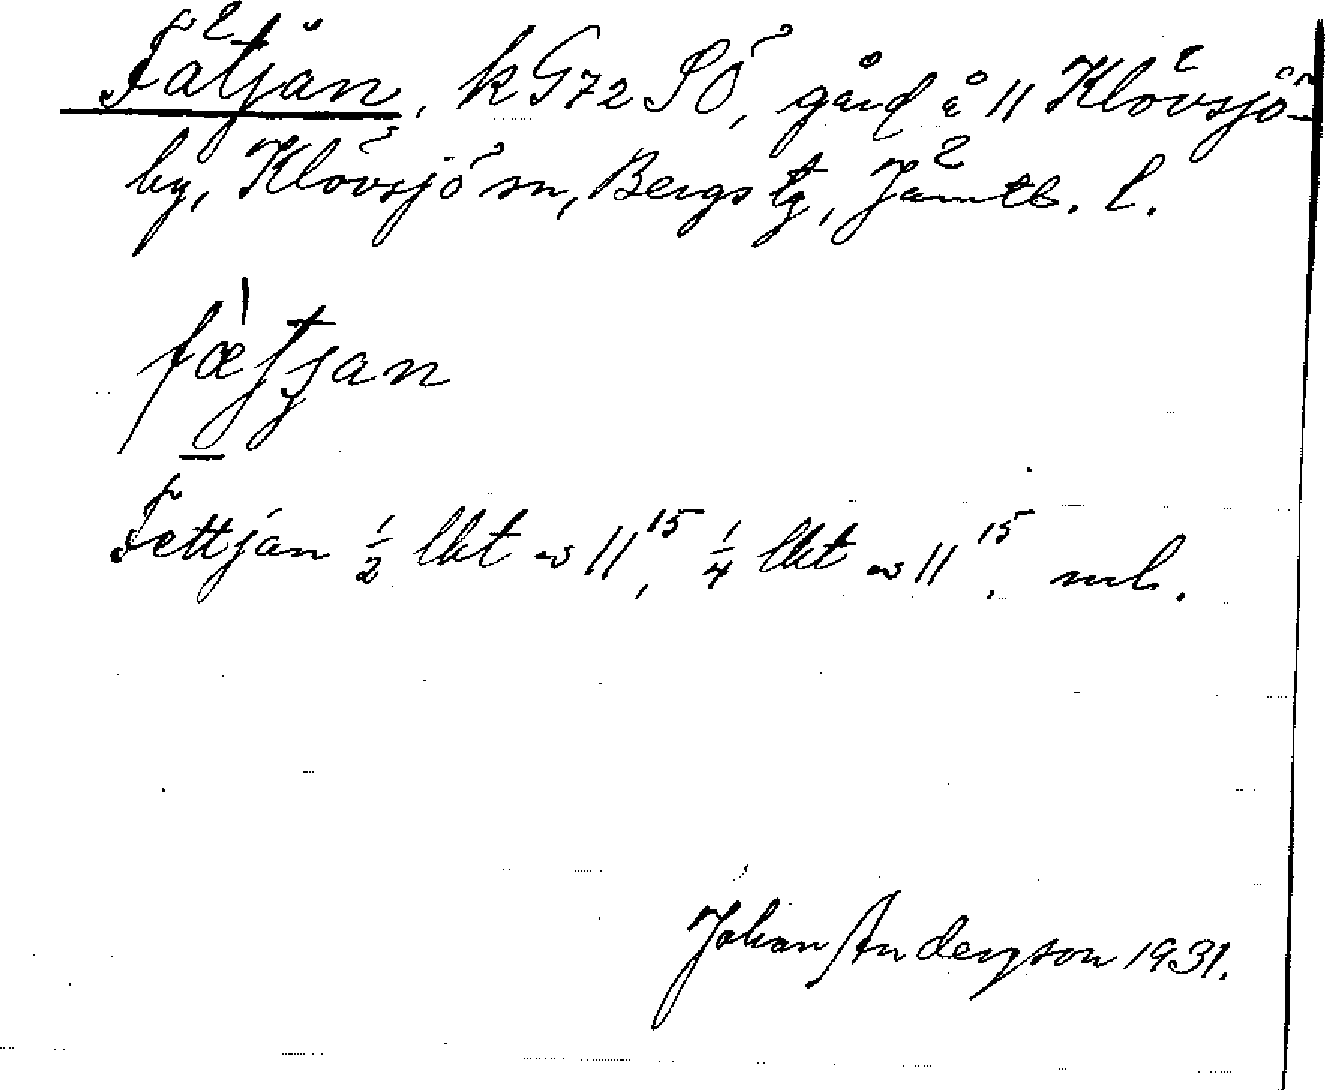 Fätjän, k G72 SÖ, gård å 11 Klövsjö-
by, Klövsjö sn, Bergs tg, Jämtl. l.
fæt̀jan
Fettjän ½ lkt ~ 11¹⁵, ¼ lkt ~ 11¹⁵. mb.
Johan Anderson 1931.